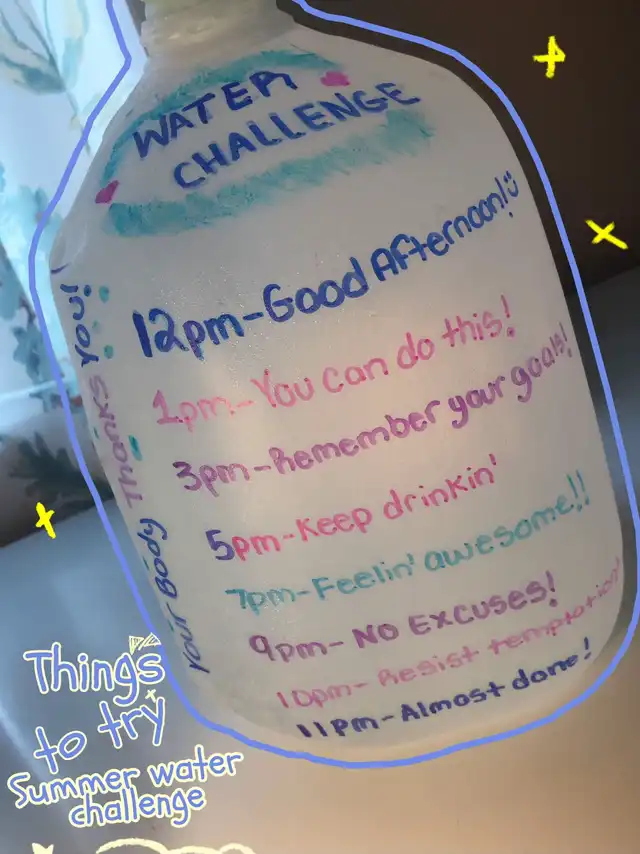 WATER
CHALLENGE
12pm-Good Afternoon!
1pm-You can do this!
3pm-Remember your goals!
5pm-Keep drinkin'
7pm-Feelin' awesome!!
9pm-NO EXCUSES!
10pm-Resist temptation!
11pm-Almost done!
Your Body Thanks You!
Things
to try
Summer water
challenge